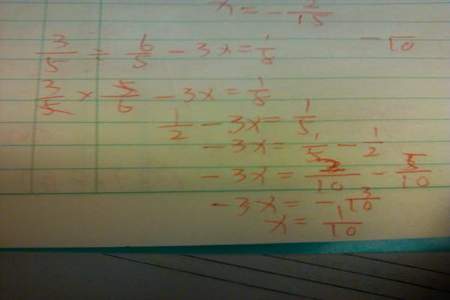 x = - 2/15
3/5 ÷ 6/5 - 3x = 1/5
- /10
3/5 × 5/6 - 3x = 1/5
1/2 - 3x = 1/5
- 3x = 1/5 - 1/2
- 3x = 2/10 - 5/10
- 3x = - 3/10
x = 1/10